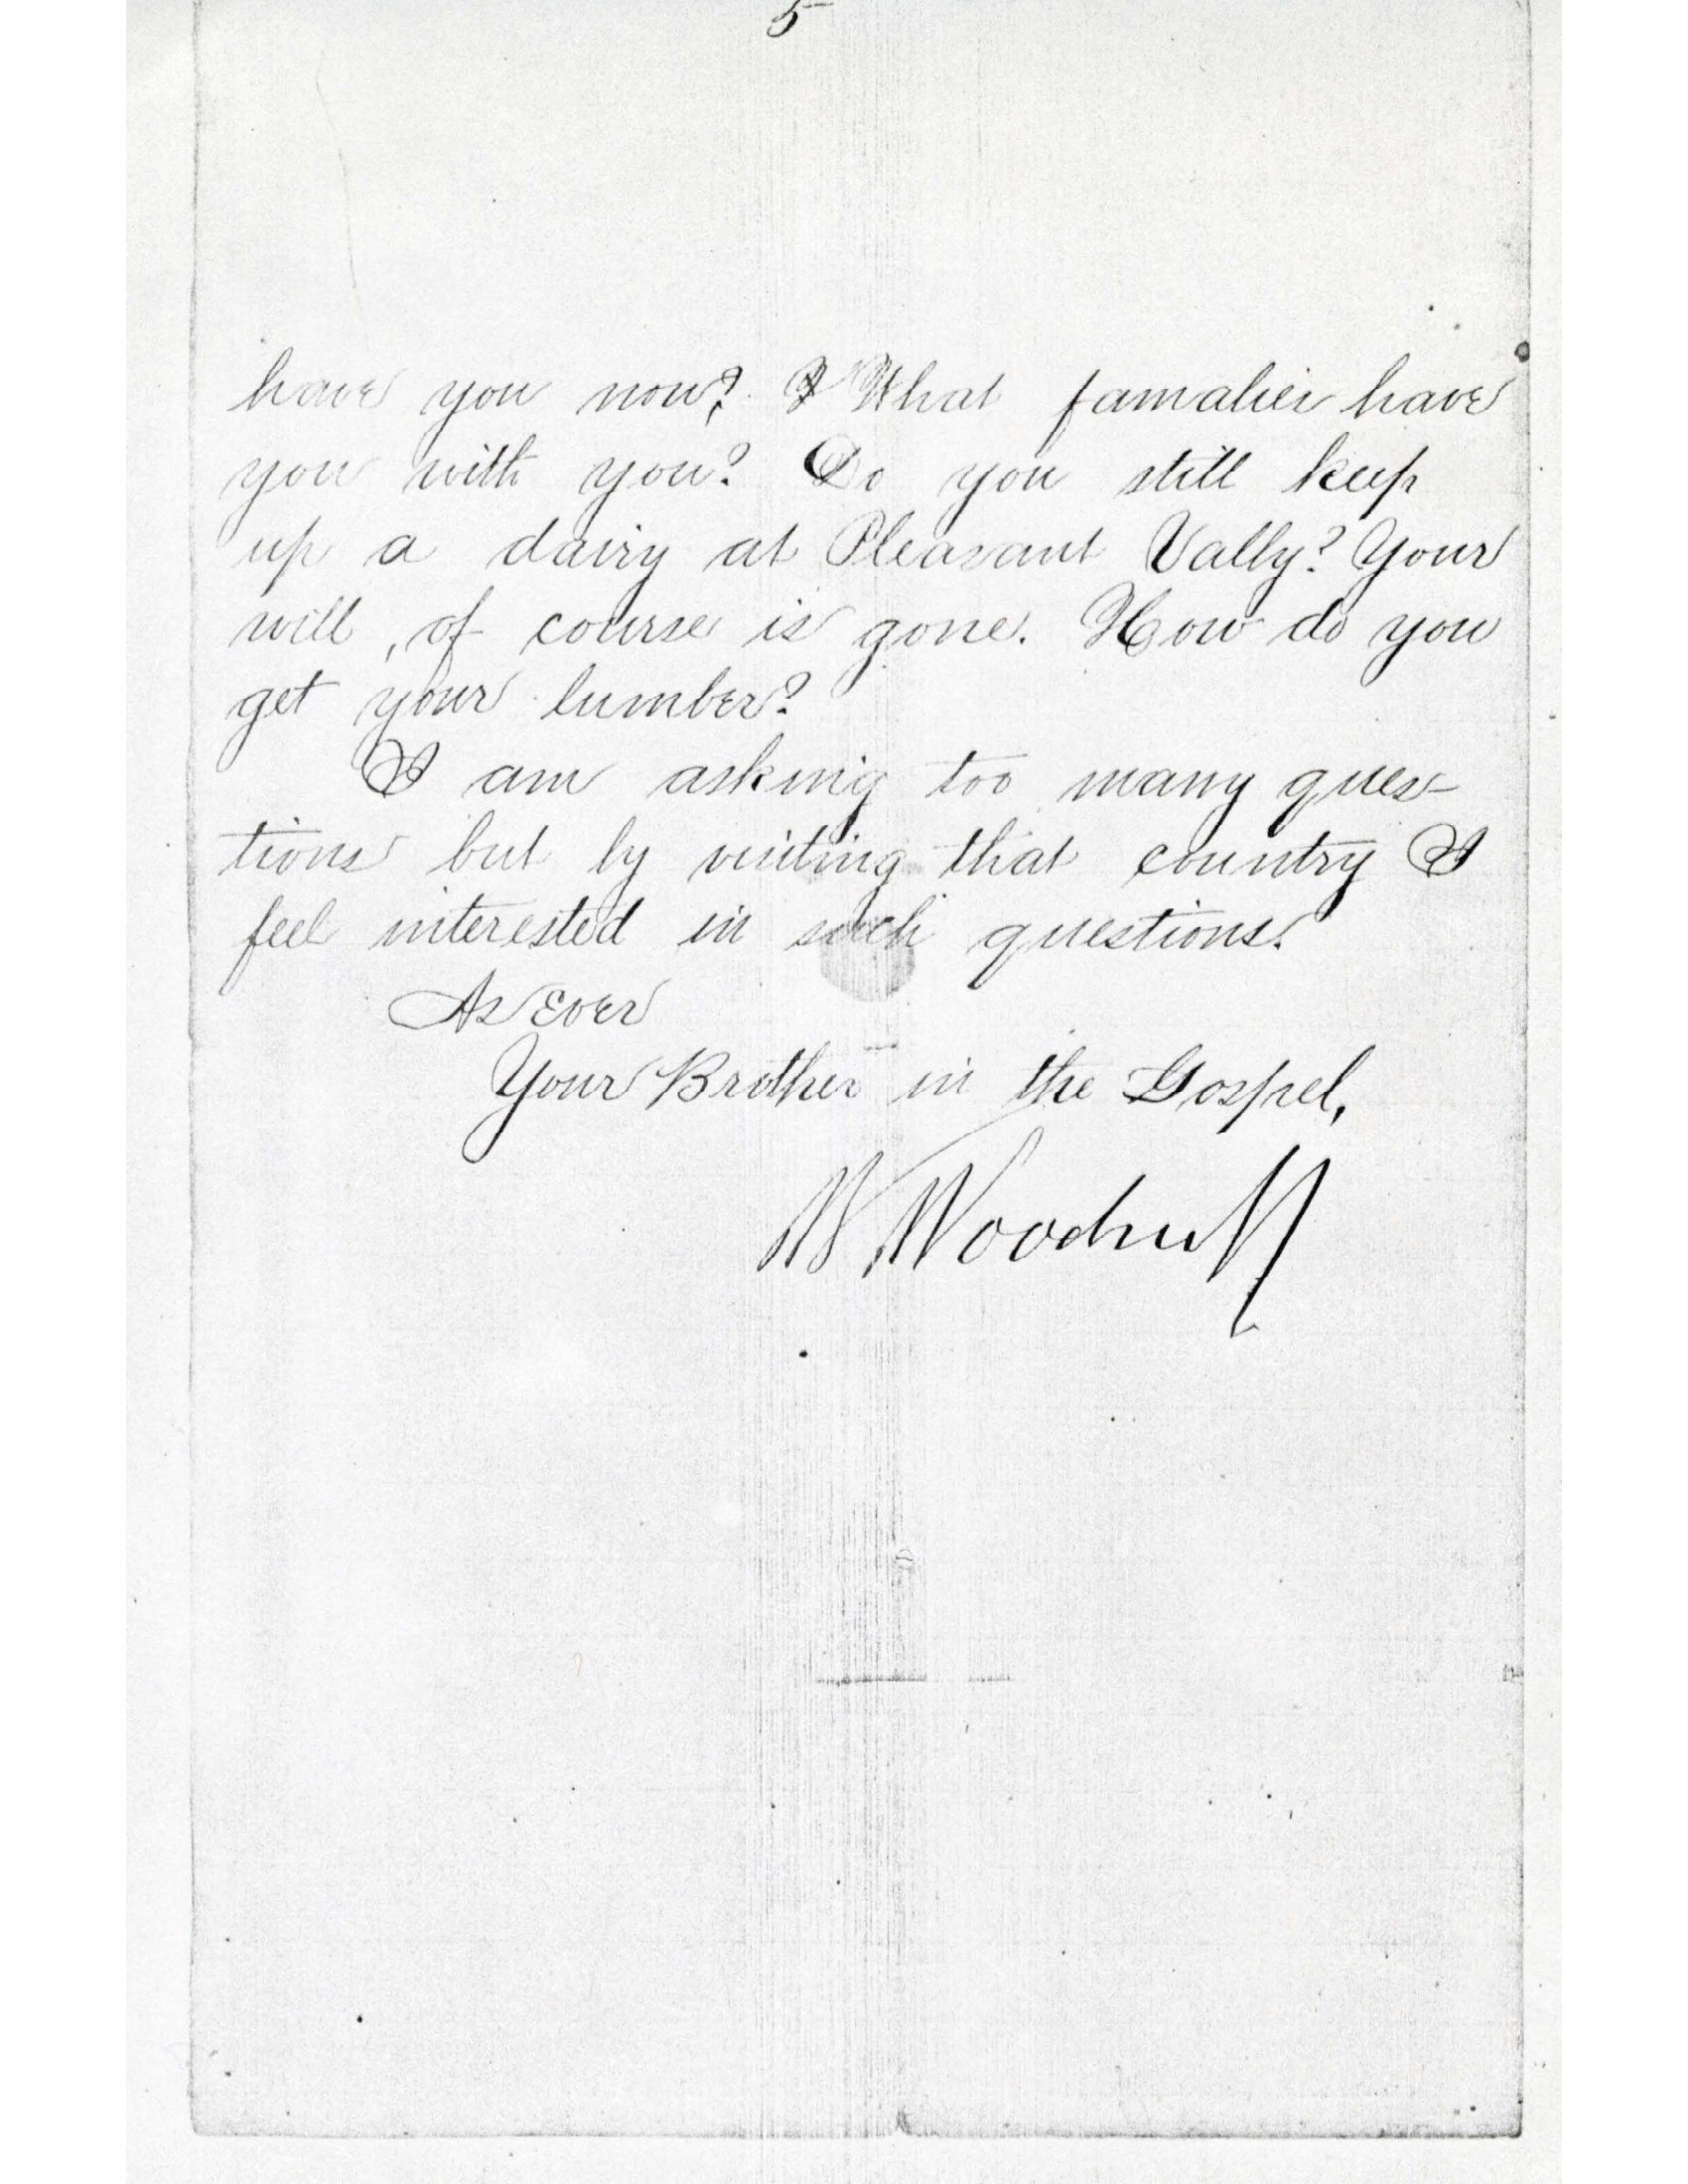 5
have you now? What famalies have
you with you? Do you still keep
up a dairy at Pleasant Vally? Your
will, of course is gone. How do you
get your lumber?
I am asking too many ques-
tions but by visiting that country I
feel interested in such questions.
As Ever
Your Brother in the Gospel,
W. Woodruff